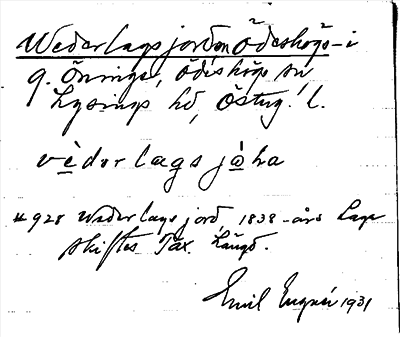 Wederlagsjorden Ödeshögs - i
g. Öninge, Ödeshögs sn
Lysings hd, Östug. l.
vèderlagsjo̊ha
# 928 Wederlagsjord, 1838 - års Laga
skiftes Tax. Längd.
Emil Engzén 1931